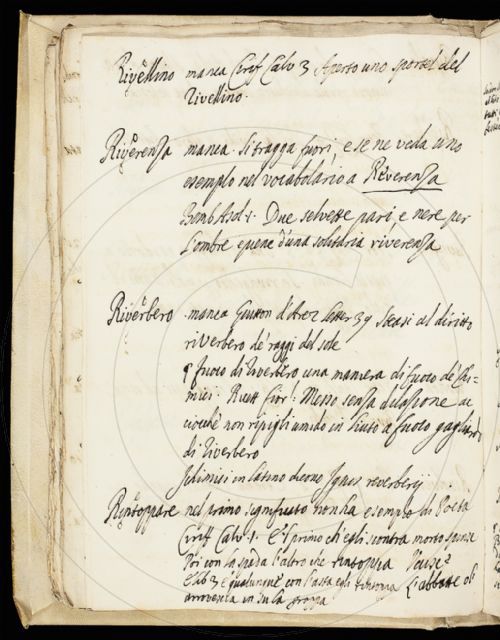 Rivellino manca Ciriff Calv 3 Aperto uno sportel del
Rivellino.
Riverenza manca. Si tragga fuori, e se ne veda uno
esempio nel vocabolario a Reverenza
Bemb Asol. 1. Due selvette pari, e nere per
l'ombre piene d'una solitaria riverenza
Riverbero manca Guitton d'Arez letter 39 steasi al diritto
riverbero de' raggi del sole
fuoco di riverbero una maniera di fuoco de' Chi=
mici. Ricett Fior. Messo senza dilazione
non ripigli umido in fiuto a fuoco gagliardo
di riverbero
I chimici in latino dicono Ignis reverberij
Rintoppare nel primo significato non ha esempio di Poeta
Ciriff Calv. 1. E'l primo ch'egli scontra morto
Poi con la spada l'altro che rintoppa
e lib 3 E qualunque con l'asta egli rintoppa L'abbatte o
arrovescia in su la groppa